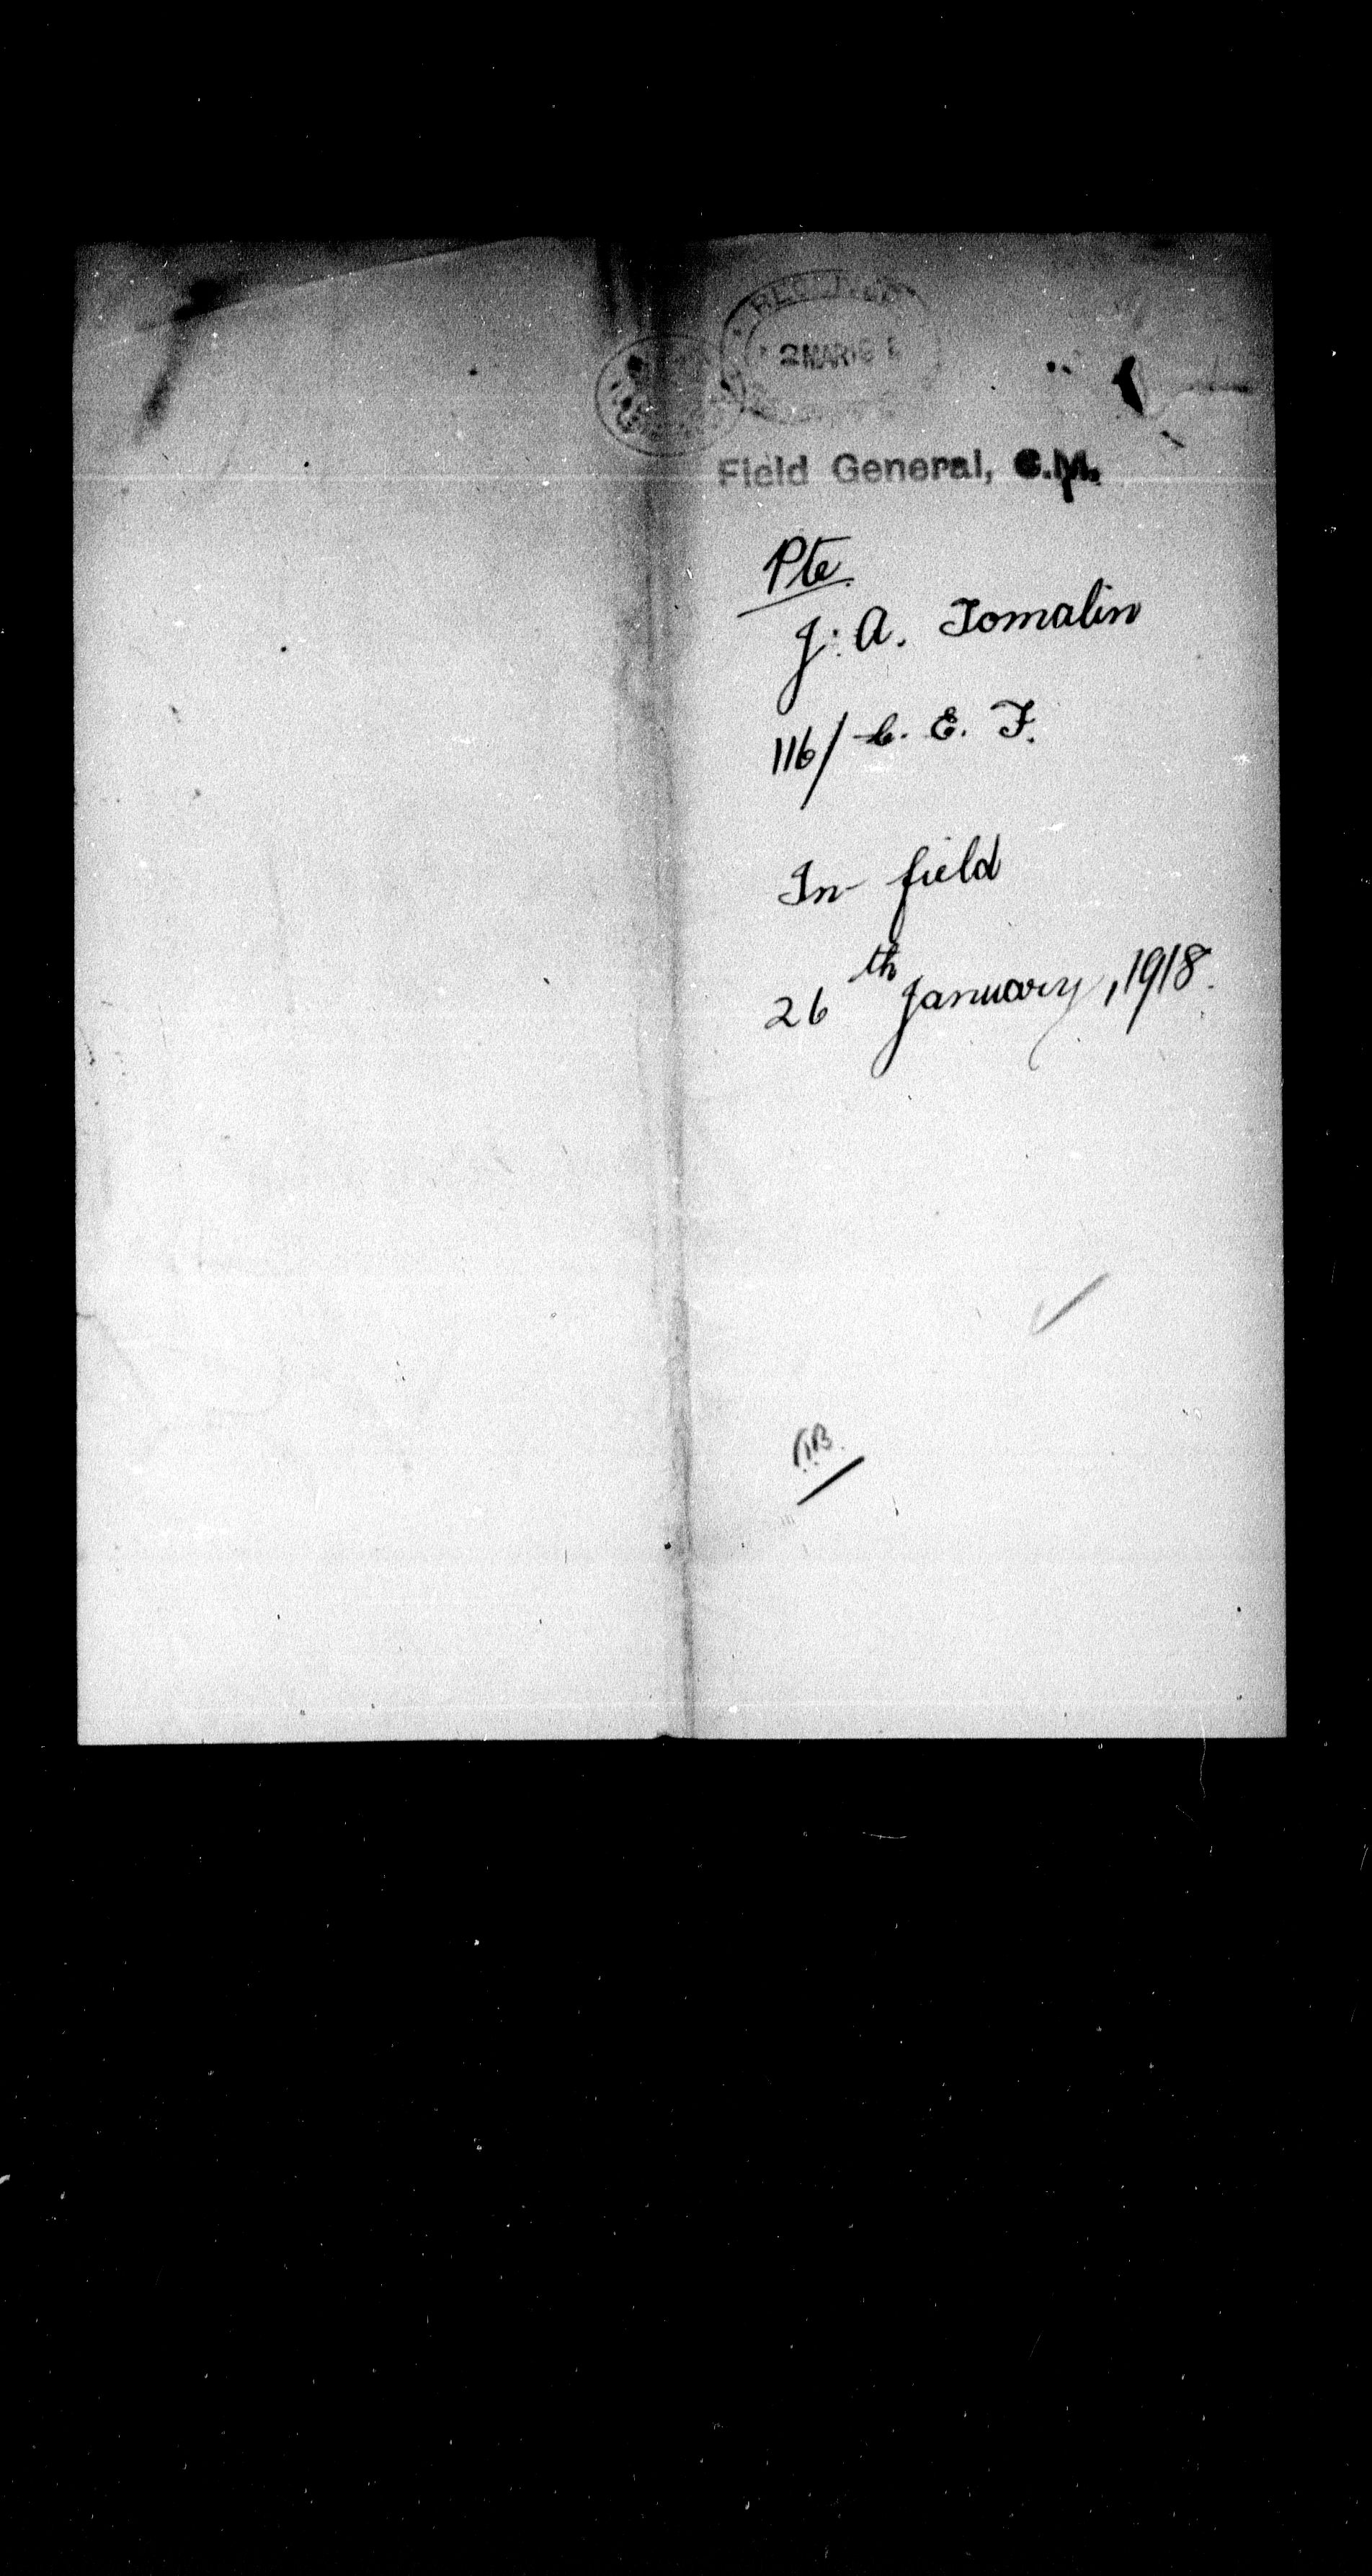 RECEIVED
2 MAR 191
Field General, C.M.
Pte
J. A. Tomalin
116/ C. E. F.
In field
26th January, 1918.